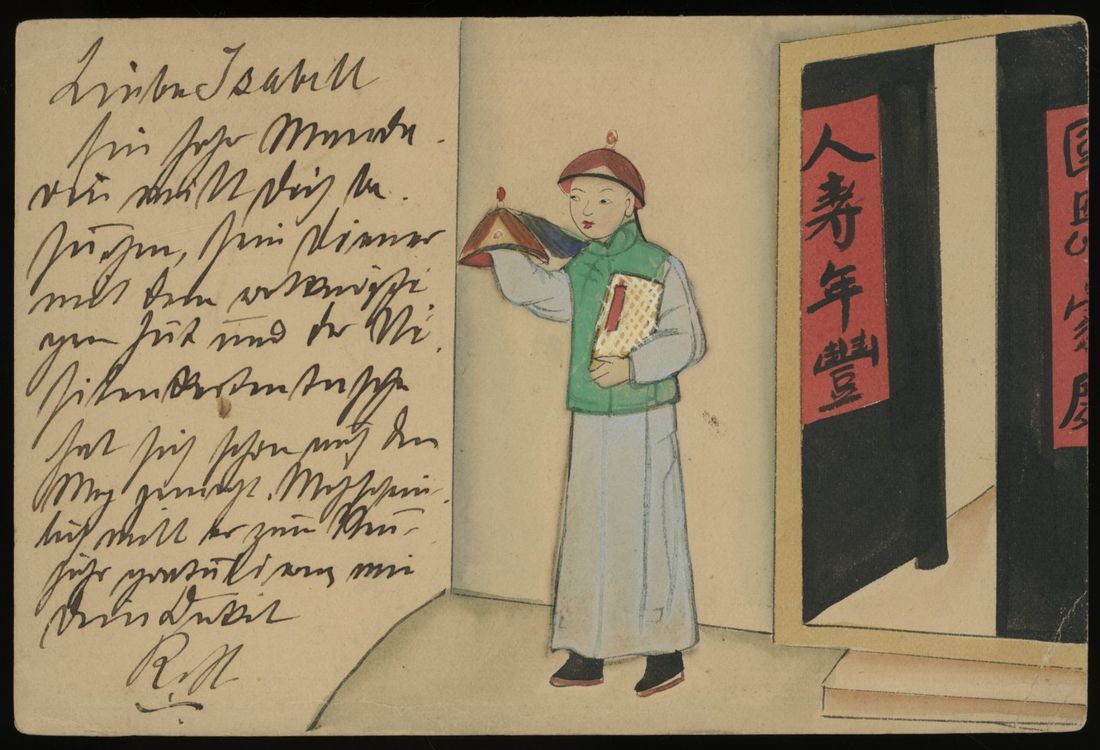 Liebe Isabell
Ein hoher Manda-
rin will dich be-
suchen, sein Diener
mit dem merkwürdi-
gen Hut und der Vi-
sitenkartentasche
hat sich schon auf den
Weg gemacht. Wahrschein-
lich will er zum Neu-
jahr gratulieren wie
dein Onkel
人壽年豐
國恩家慶